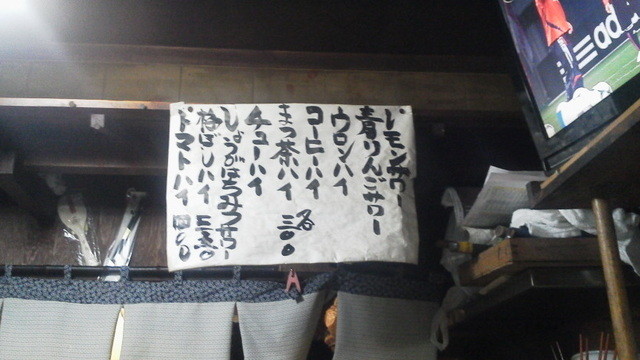 レモンサワー
青りんごサワー
ウロンハイ
コーヒーハイ 各
まっ茶ハイ 三〇〇
チューハイ
しょうがはちみつサワー
梅ぼしハイ 三五〇
トマトハイ 四〇〇